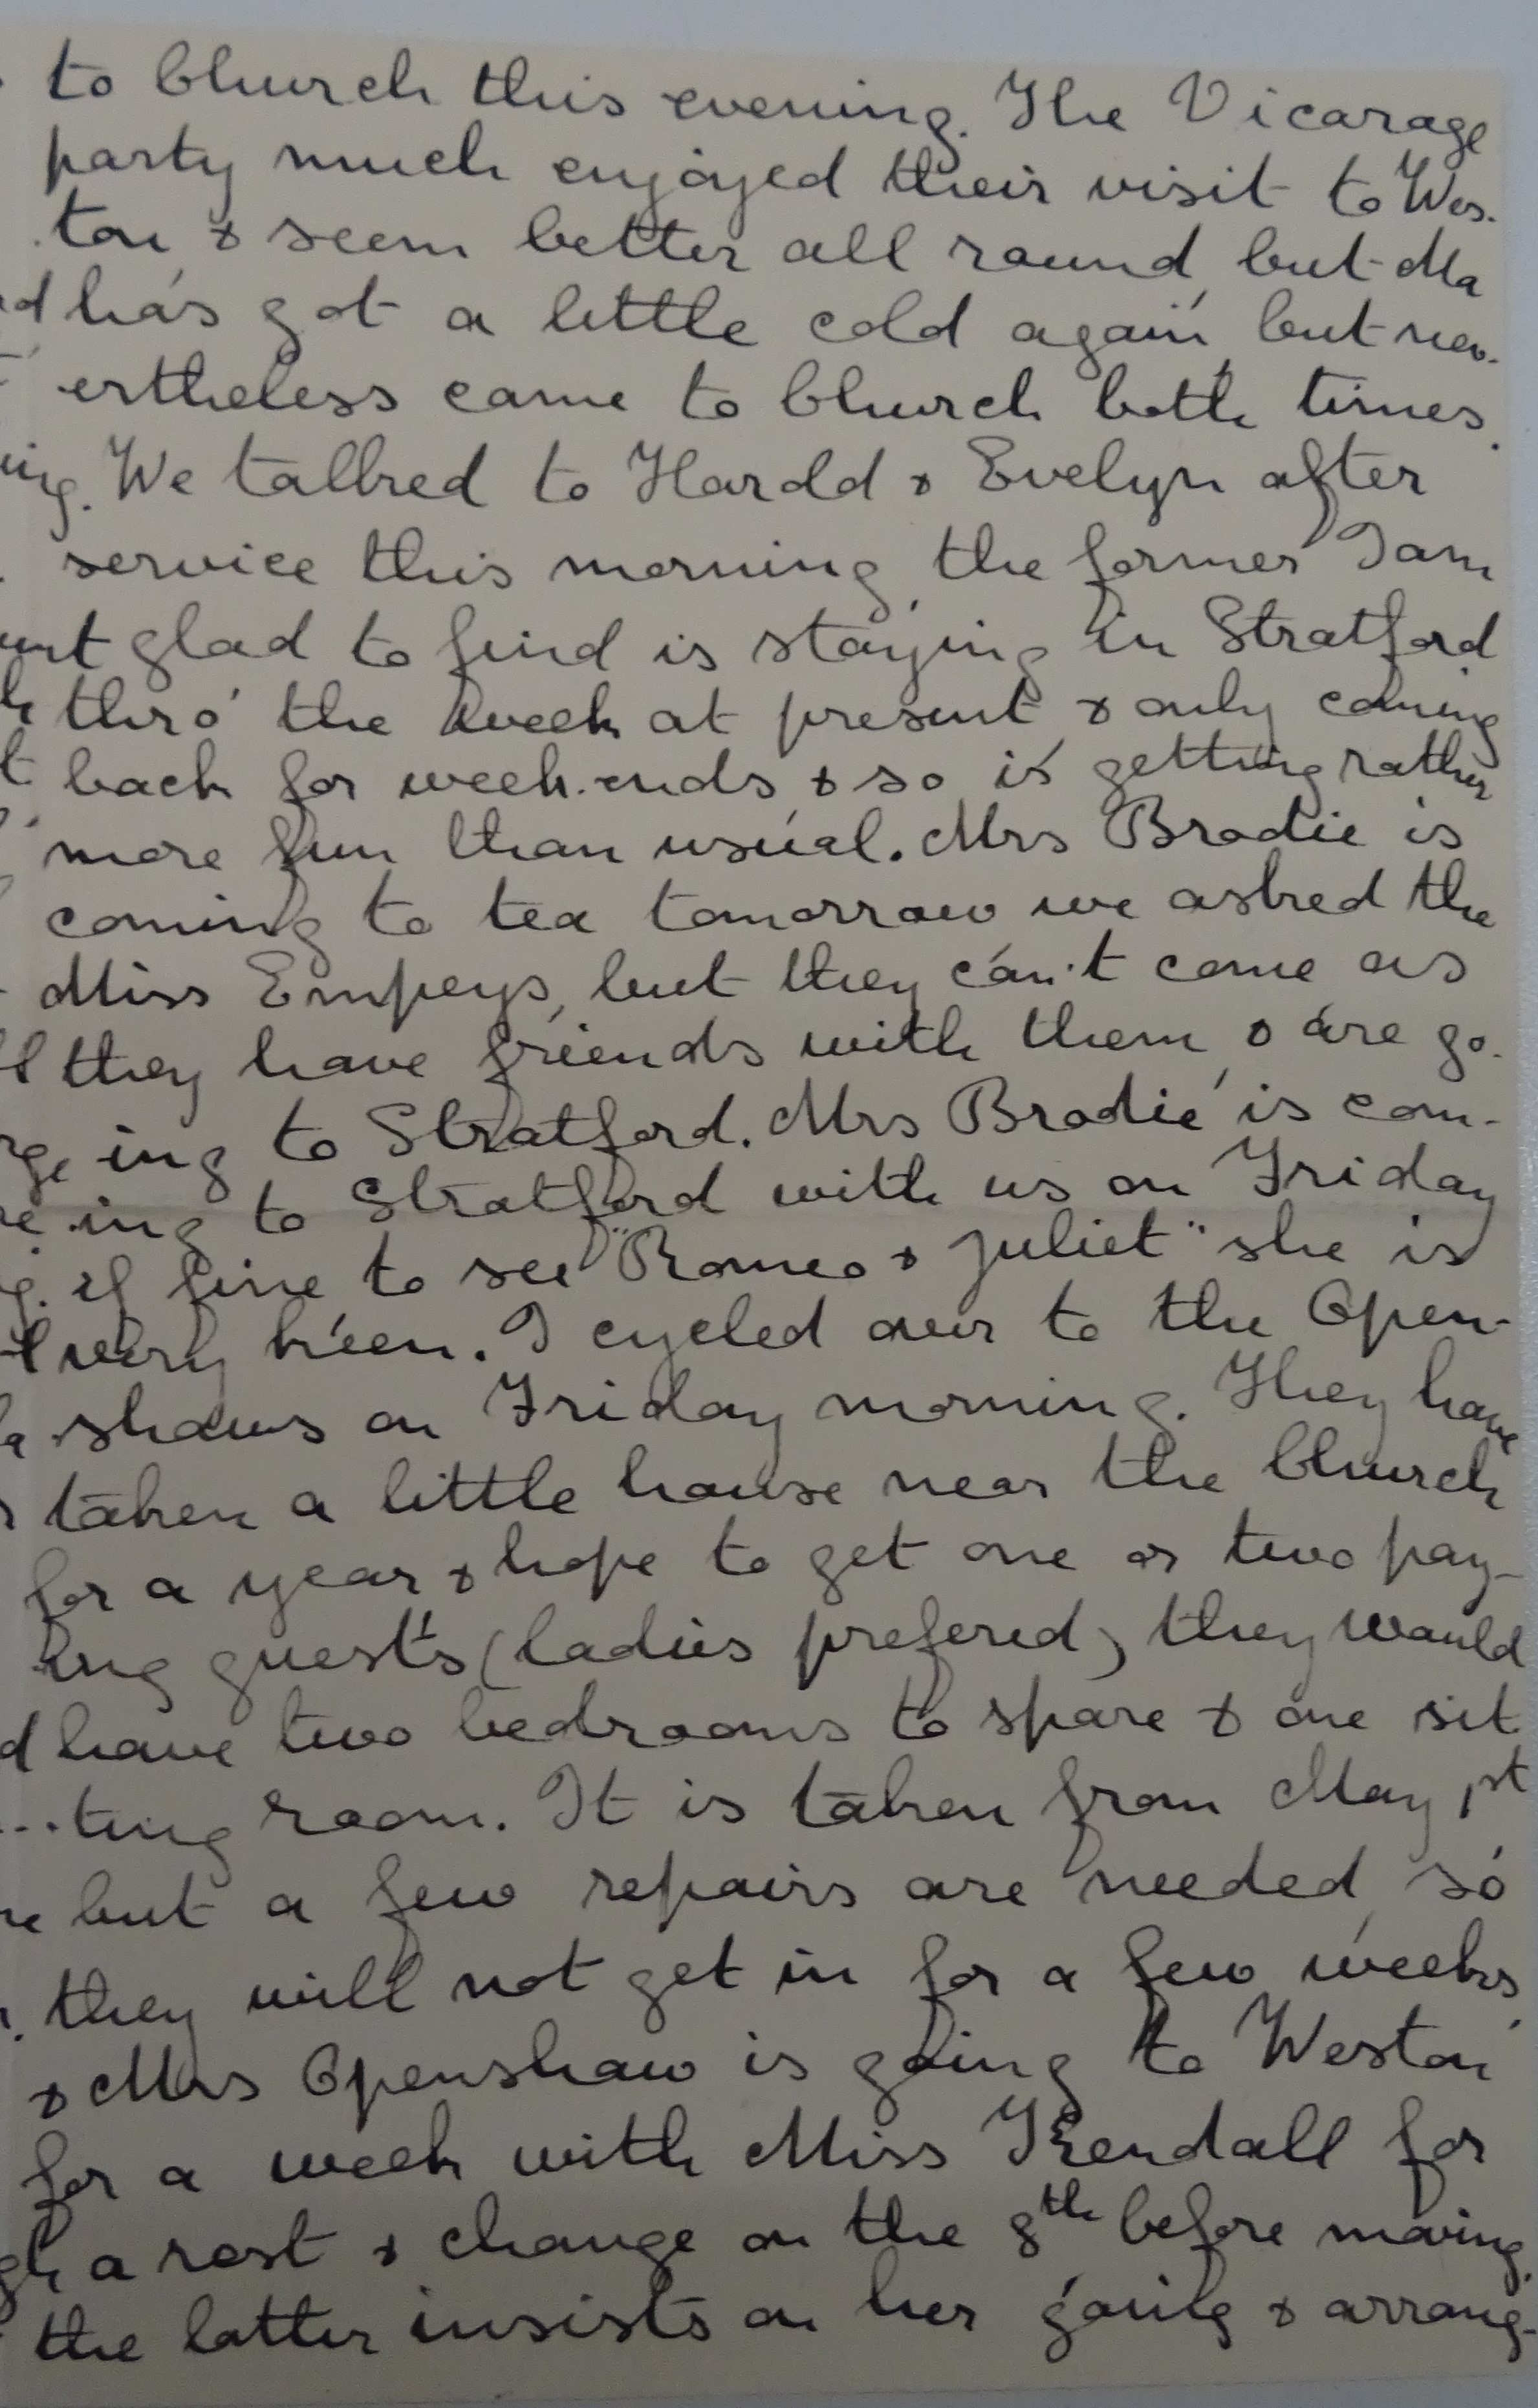 to Church this evening. The Vicarage
party much enjoyed their visit to Wes-
ton & seem better all round, but Ma
has got a little cold again, but nev-
ertheless came to Church both times.
We talked to Harold & Evelyn after
service this morning, the former I am
glad to find is staying in Stratford
thro' the week at present & only coming
back for week-ends & so is getting rather
more fun than usual. Mrs Brodie is
coming to tea tomorrow we asked the
Miss Empeys, but they can't come as
they have friends with them, & are go-
ing to Stratford. Mrs Brodie is com-
ing to Stratford with us on Friday
if fine to see "Romeo & Juliet" she is
very keen. I cycled over to the Open-
shaws on Friday morning. They have
taken a little house near the Church
for a year & hope to get one or two pay-
ing guests (ladies prefered) they would
have two bedrooms to spare & one sit
ting room. It is taken from May 1st
but a few repairs are needed, so
they will not get in for a few weeks,
& Mrs Openshaw is going to Weston
for a week with Miss Kendall for
a rest & change on the 8th before moving.
the latter insists on her going & arrang-